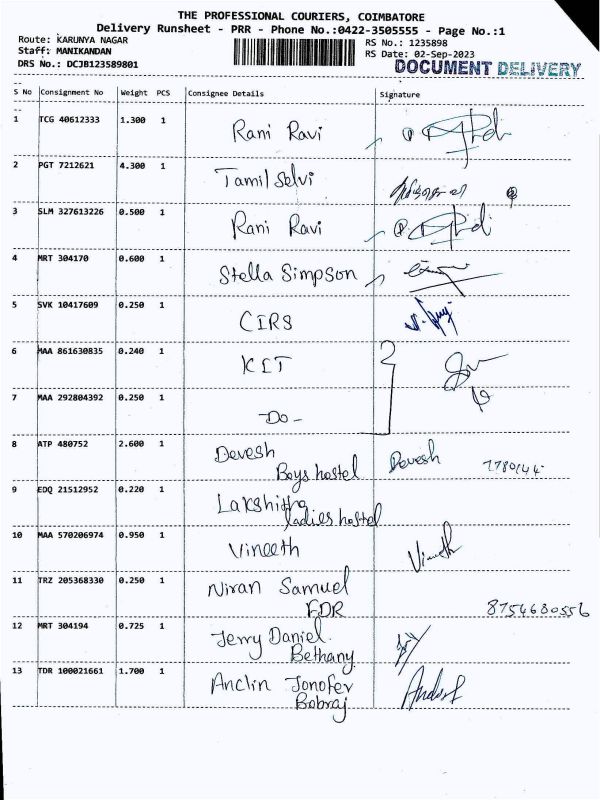 THE PROFESSIONAL COURIERS, COIMBATORE
Delivery Runsheet - PRR - Phone No.:0422-3505555 - Page No.:1
Route: KARUNYA NAGAR
RS No.: 1235898
Staff: MANIKANDAN
RS Date: 02-Sep-2023
DRS No.: DCJB123589801
DOCUMENT DELIVERY
S No Consignment No Weight PCS Consignee Details Signature
1 TCG 40612333 1.300 1 Rani Ravi
2 PGT 7212621 4.300 1 Tamil Selvi
3 SLM 327613226 0.500 1 Rani Ravi
4 MRT 304170 0.600 1 Stella Simpson
5 SVK 10417609 0.250 1 CIRS
6 MAA 861630835 0.240 1 KIT
7 MAA 292804392 0.250 1 -Do-
8 ATP 480752 2.600 1 Devesh Devesh
Boys hostel
9 EDQ 21512952 0.220 1 Lakshitha
ladies hostel
10 MAA 570206974 0.950 1 Vineeth Vineeth
11 TRZ 205368330 0.250 1 Niran Samuel
EDR 8754680556
12 MRT 304194 0.725 1 Jerry Daniel.
Bethany
13 TDR 100021661 1.700 1 Anclin Jonofer
Bobraj